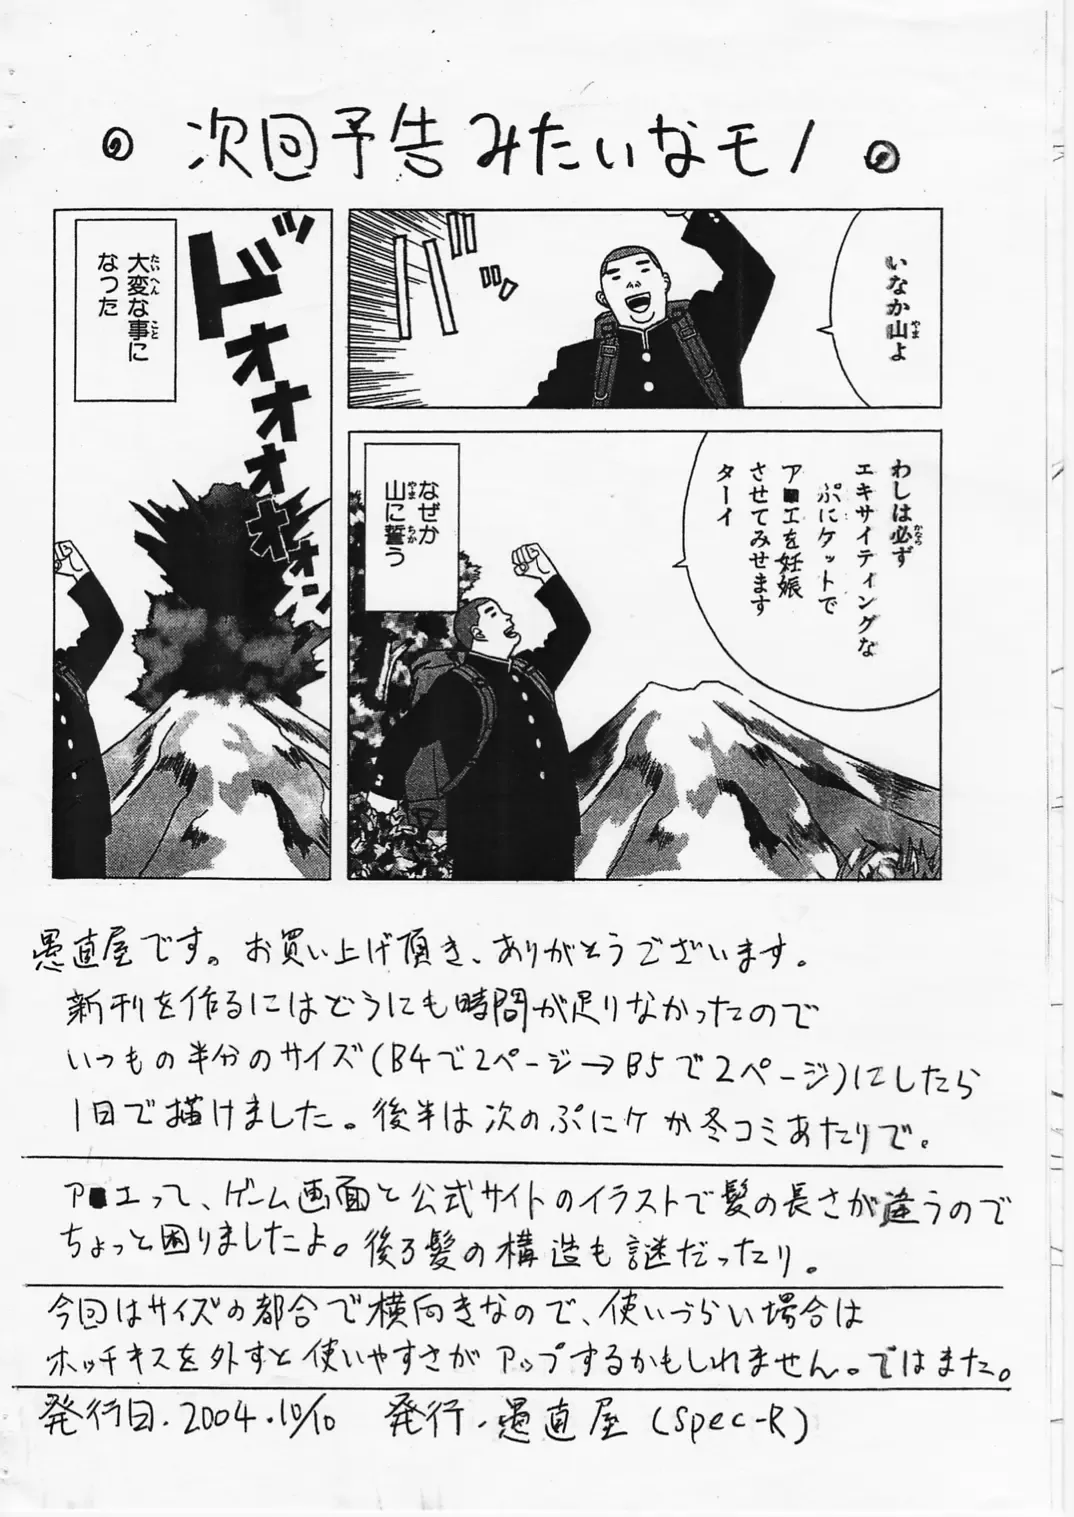 次回予告みたいなモノ
いなか山よ
やま
ババッ
わしは必ず
かなら
エキサイティングな
ぷにケットで
ア■エを妊娠
させてみせます
ターイ
なぜか
山に誓う
やま
ちか
ドォオオオオオォンッ
大変な事に
たいへん
こと
なった
愚直屋です。お買い上げ頂き、ありがとうございます。
新刊を作るにはどうにも時間が足りなかったので
いつもの半分のサイズ(B4で2ページ→B5で2ページ)にしたら
1日で描けました。後半は次のぷにケか冬コミあたりで。
ア■エって、ゲーム画面と公式サイトのイラストで髪の長さが違うので
ちょっと困りましたよ。後ろ髪の構造も謎だったり。
今回はサイズの都合で横向きなので、使いづらい場合は
ホッチキスを外すと使いやすさがアップするかもしれません。ではまた。
発行日.2004.10/10 発行.愚直屋(Spec-R)